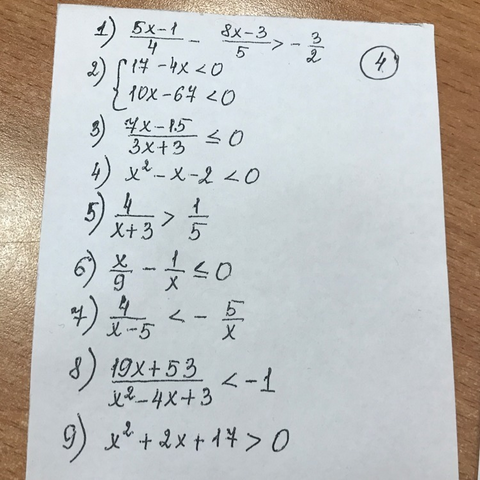 1) (5x-1)/4 - (8x-3)/5 > -3/2
4
2) { 17-4x<0
10x-67<0
3) (7x-15)/(3x+3) ≤ 0
4) x²-x-2<0
5) 4/(x+3) > 1/5
6) x/9 - 1/x ≤ 0
7) 4/(x-5) < -5/x
8) (19x+53)/(x²-4x+3) < -1
9) x²+2x+17>0